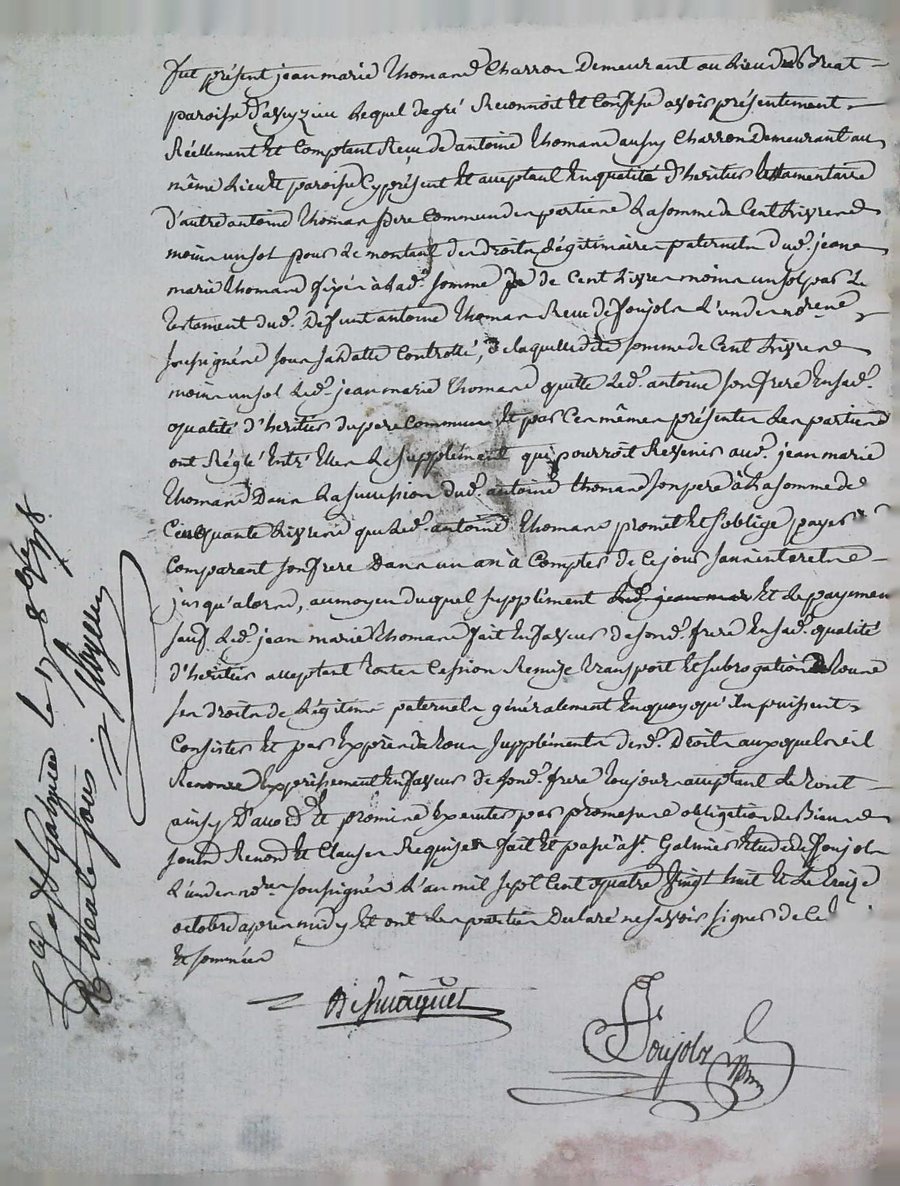 fut présent jean marie thomand Charron Demeurant au Lieu de Breat
paroisse d'aveyzieu Lequel de gré Reconnoit Et Confesse avoir présentement
Réellement Et Comptant Reçu de antoine thomand aussy Charron Demeurant au
même Lieu Et paroisse Cy présent Et acceptant En qualité d'heritier testamentaire
d'autre antoine thomand pere Commun des parties La somme de Cent Livres
moins un sol pour Le montant des droits Légitimaires paternels dud. jean
marie thomand fixés à Lad. somme de Cent Livres moins un sol par Le
testament dud. Defunt antoine thomand Reçu de foujols L'un des nores
soussignés sous sa datte Controllé, de laquelle dite somme de Cent Livres
moins un sol Led. jean marie thomand quitte Led. antoine son frere En sad.
qualité d'heritier du pere Commun Et par Ces mêmes présentes Les parties
ont Réglé Entr'Elles Le supplément qui pourroit Revenir aud. jean marie
thomand Dans La succession dud. antoine thomand son pere à La somme de
Cinquante Livres que Led. antoine thomand promet Et s'oblige payer
Comparant son frere Dans un an à Compter de Ce jour sans interets
jusqu'alors, au moyen duquel supplément Led. jean mar Et Le payement
sauf Led. jean marie thomand fait En faveur de sond. frere En sad. qualité
d'heritier acceptant toutes Cession Remise transport Et subrogation De tous
ses droits de Légitime paternels généralement En quoy qu'ils puissent
Consister Et par Exprès de tous suppléments desd. Droits auxquels il
Renonce Expressément En faveur de sond. frere toujours acceptant De tout
ainsy D'accord Et promis Executer par promesses obligation de Biens
soumd Renond Et Clauses Requises fait Et passé à St Galmier Etude de foujols
L'un des nores soussignés L'an mil sept Cent quatre vingt huit Et Le treize
octobre après midy Et ont Les parties Declaré ne savoir signer de Ce
Et sommées
foujols
St Galmier le 17 8bre 1788